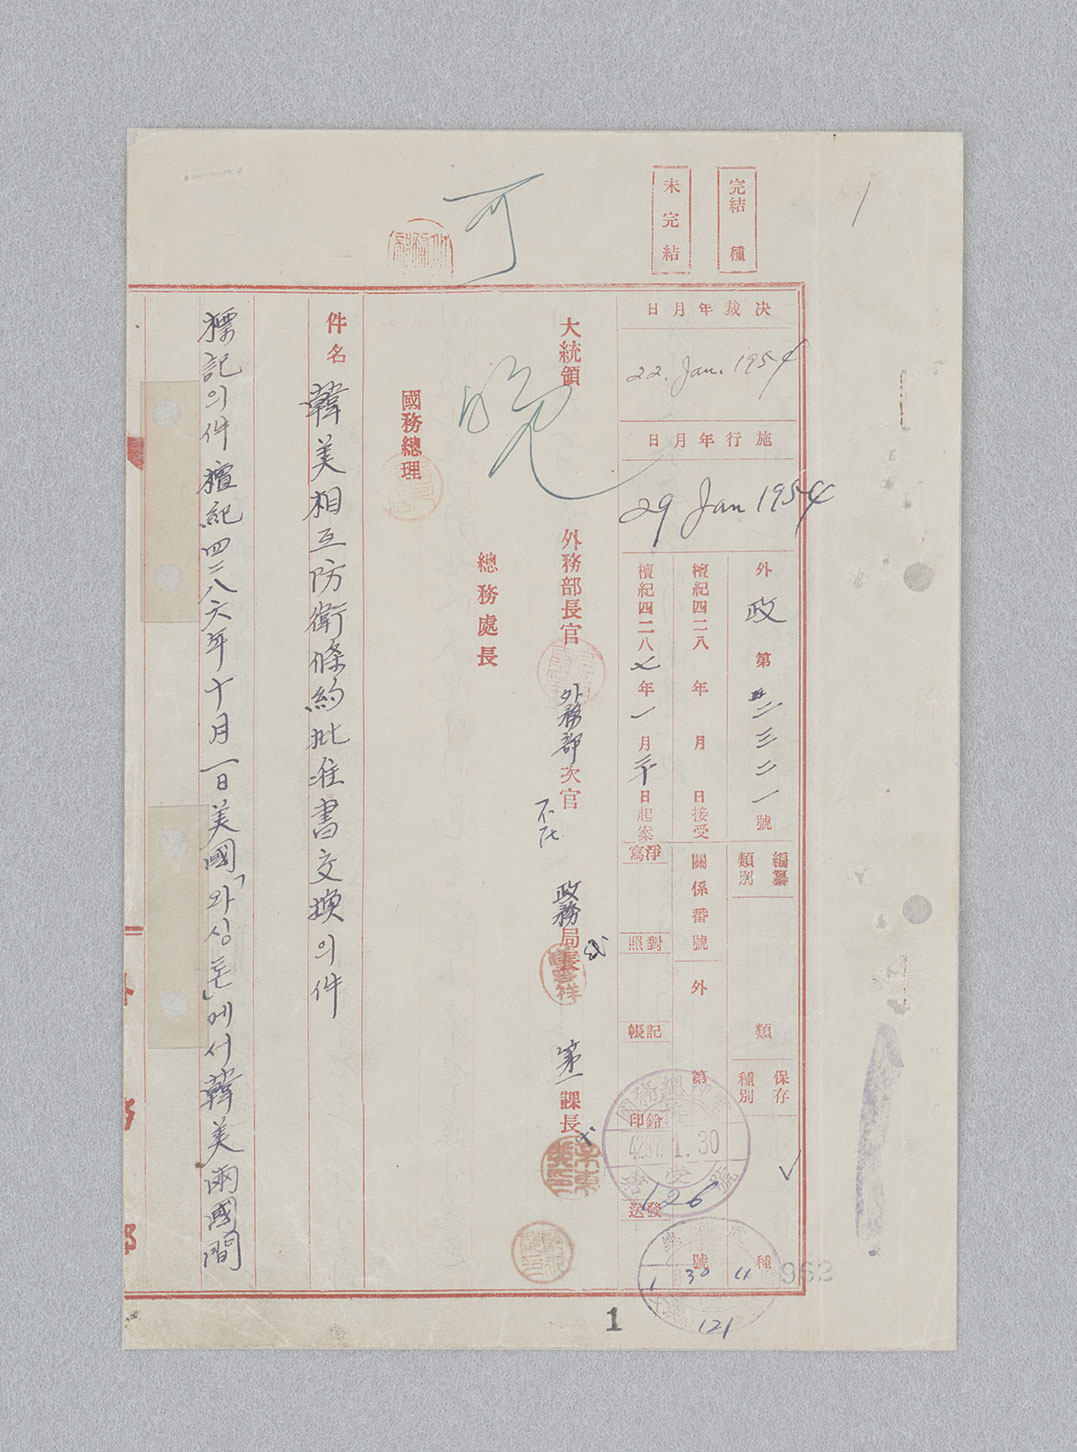 完結 種
未完結
可
決裁年月日
22. Jan. 1954
施行年月日
29 Jan 1954
外政第 二三二一號
編纂類別
類
保存種別
種
檀紀四二八 年 月 日接受
關係番號
外
第
號
檀紀四二八七年一月 日起案
淨寫
對照
記帳
鈐印
發送
4287. 1. 30
126
1 30
121
962
大統領
晩
外務部長官
外務部次官
不在
政務局長
第一課長
總務處長
國務總理
件名 韓美相互防衛條約批准書交換의件
標記의件檀紀四二八六年十月一日美國「와싱톤」에서韓美兩國間
1